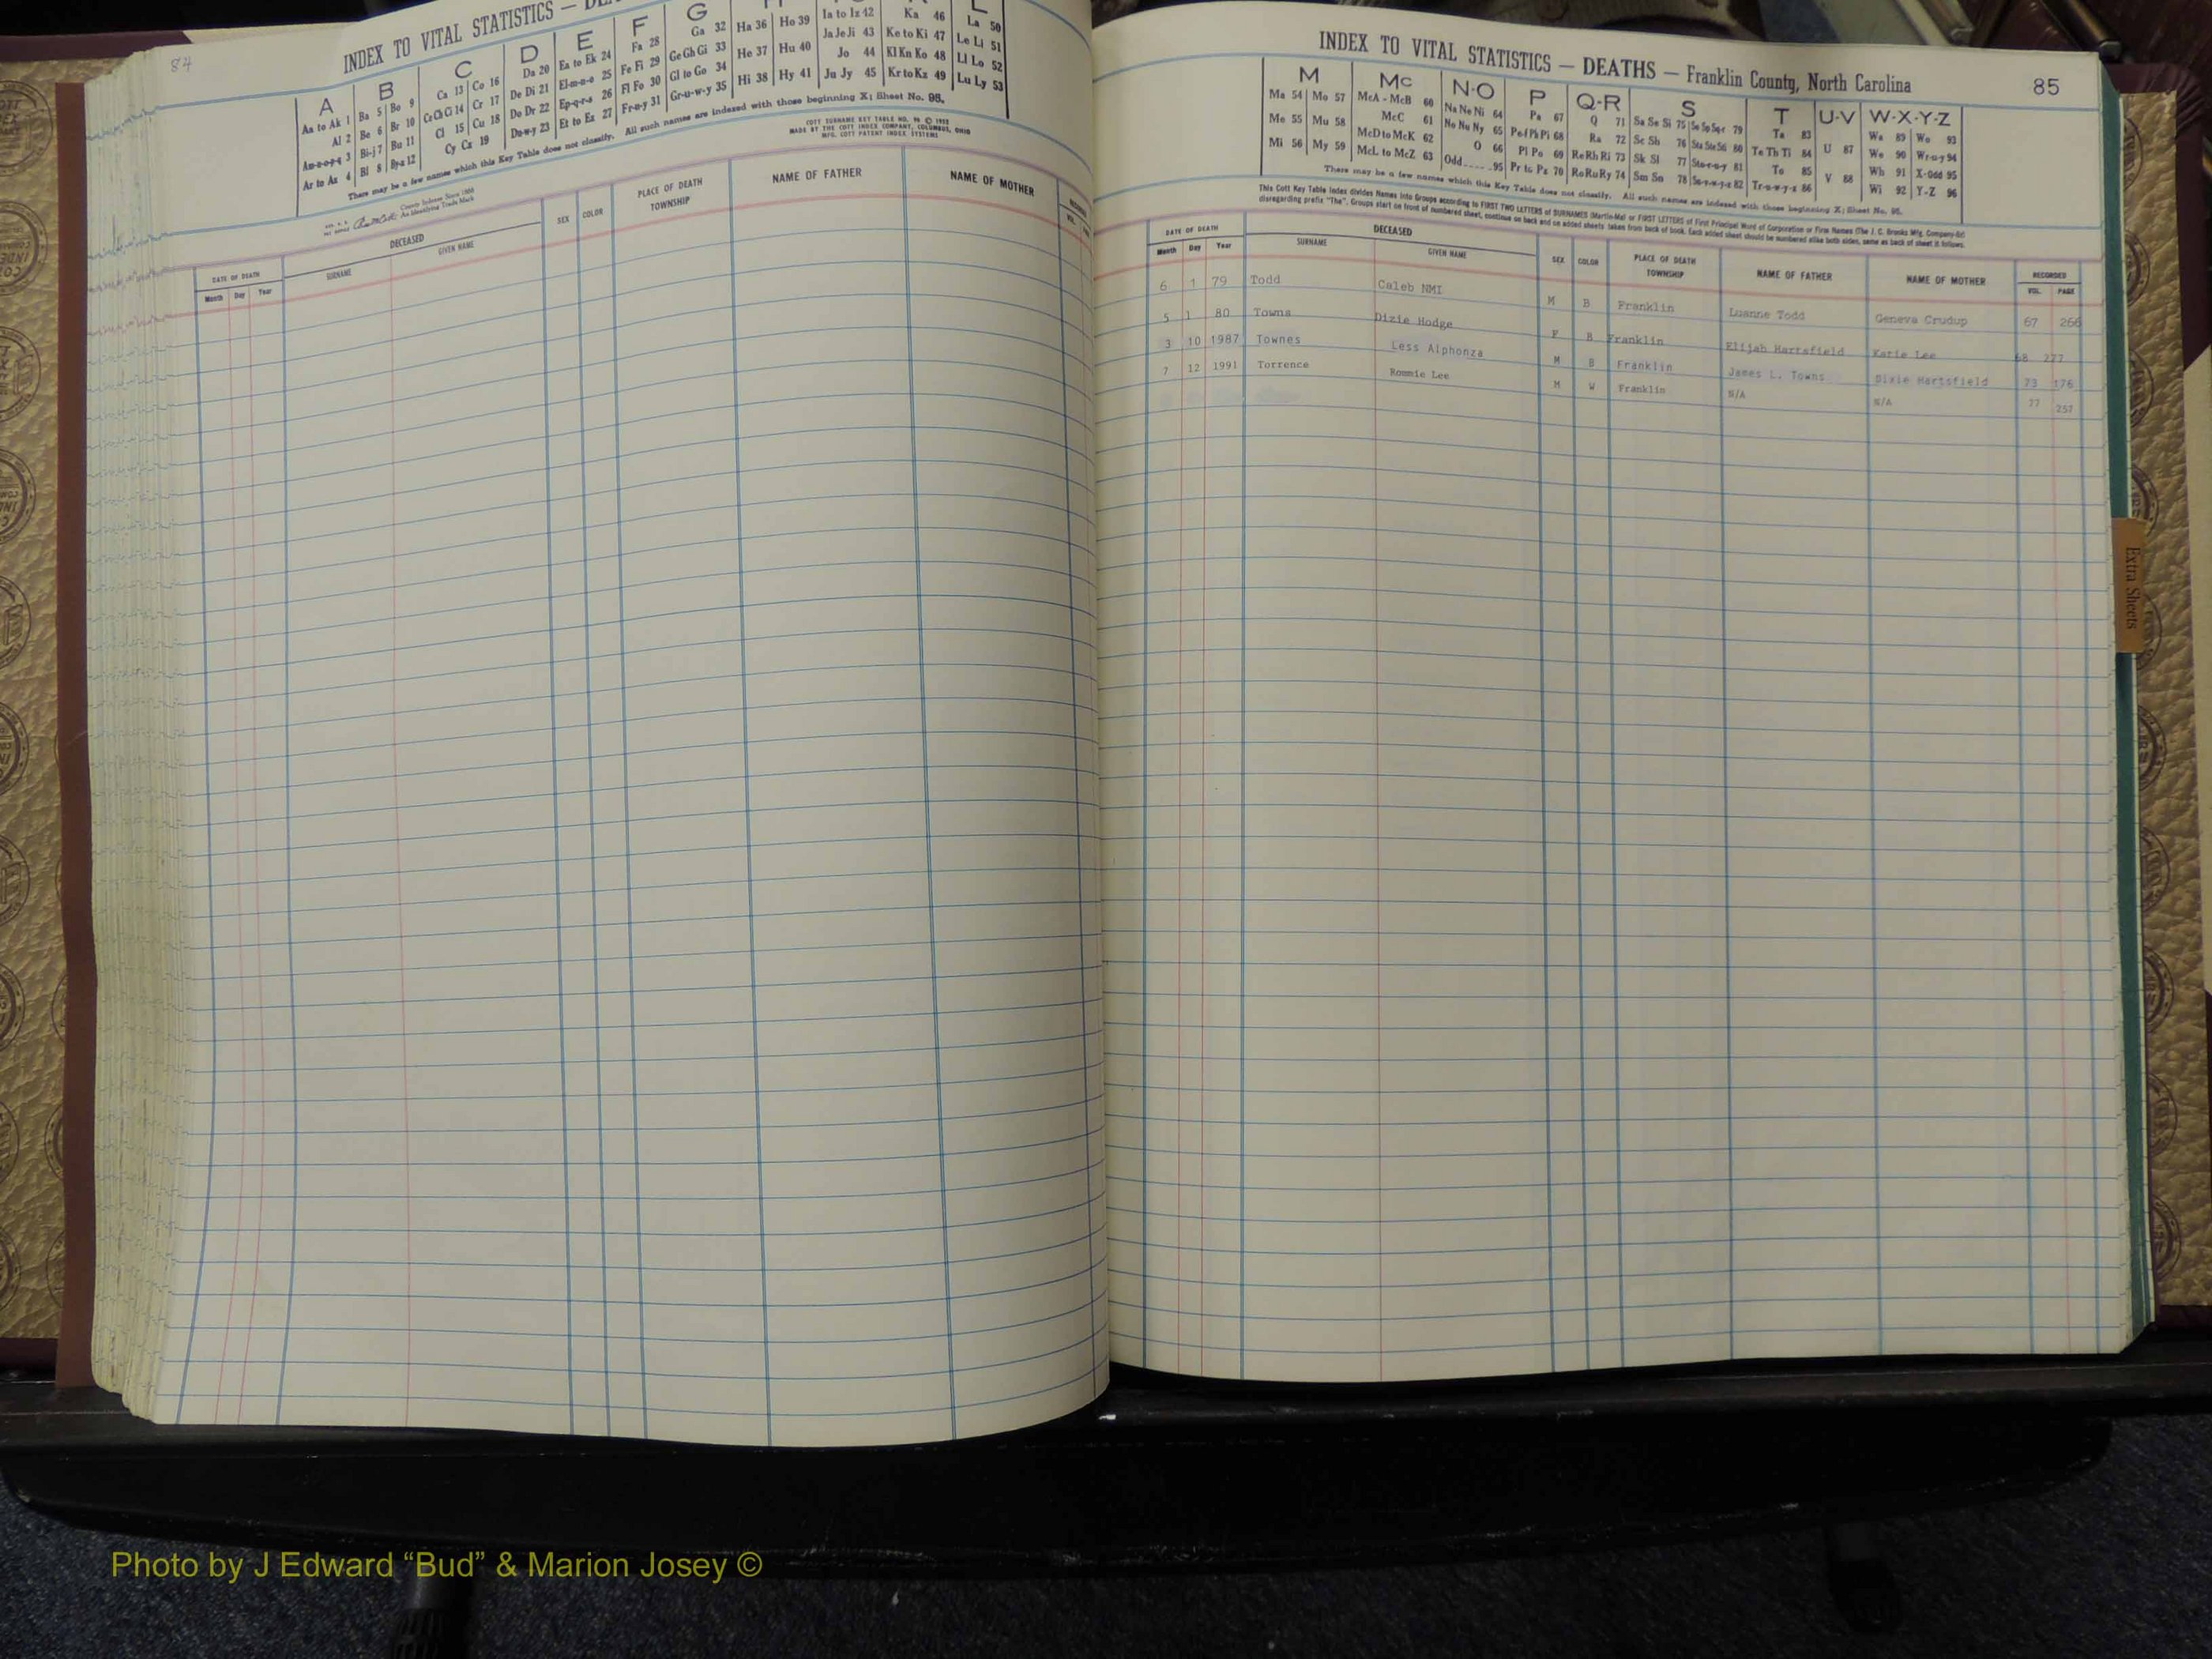 84
INDEX TO VITAL STATISTICS —
A B C D E F G
Aa to Ak 1 Ba 5 Bo 9 Ca 13 Co 16 Da 20 Ea to Ek 24 Fa 28 Ga 32 Ha 36 Ho 39 Ia to Iz 42 Ka 46 La 50
Al 2 Be 6 Br 10 Ce Ch Ci 14 Cr 17 De Di 21 El-m-n-o 25 Fe Fi 29 Ge Gh Gi 33 He 37 Hu 40 Ja Je Ji 43 Ke to Ki 47 Le Li 51
Am-n-o-p-q 3 Bi-j 7 Bu 11 Cl 15 Cu 18 Do Dr 22 Ep-q-r-s 26 Fl Fo 30 Gl to Go 34 Hi 38 Hy 41 Jo 44 Kl Kn Ko 48 Ll Lo 52
Ar to Az 4 Bl 8 By-z 12 Cy Cz 19 Du-w-y 23 Et to Ez 27 Fr-u-y 31 Gr-u-w-y 35 Ju Jy 45 Kr to Kz 49 Lu Ly 53
There may be a few names which this Key Table does not classify. All such names are indexed with those beginning X; Sheet No. 95.
COTT SURNAME KEY TABLE NO. 96 © 1955
MADE BY THE COTT INDEX COMPANY, COLUMBUS, OHIO
MFG. COTT PATENT INDEX SYSTEMS
County Indexes Since 1888
An Identifying Trade Mark
DATE OF DEATH DECEASED SEX COLOR PLACE OF DEATH NAME OF FATHER NAME OF MOTHER
Month Day Year SURNAME GIVEN NAME TOWNSHIP VOL.
INDEX TO VITAL STATISTICS — DEATHS — Franklin County, North Carolina 85
M Mc N-O P Q-R S T U-V W-X-Y-Z
Ma 54 Mo 57 McA - McB 60 Na Ne Ni 64 Pa 67 Q 71 Sa Se Si 75 So Sp Sq-r 79 Ta 83 U 87 Wa 89 Wo 93
Me 55 Mu 58 McC 61 No Nu Ny 65 Pe-f Ph Pi 68 Ra 72 Sc Sh 76 Sta Ste Sti 80 Te Th Ti 84 V 88 We 90 Wr-u-y 94
Mi 56 My 59 McD to McK 62 O 66 Pl Po 69 Re Rh Ri 73 Sk Sl 77 Sto-r-u-y 81 To 85 Wh 91 X-Odd 95
McL to McZ 63 Odd 95 Pr to Pz 70 Ro Ru Ry 74 Sm Sn 78 Su-v-w-y-z 82 Tr-u-w-y-z 86 Wi 92 Y-Z 96
There may be a few names which this Key Table does not classify. All such names are indexed with those beginning X; Sheet No. 95.
This Cott Key Table Index divides Names into Groups according to FIRST TWO LETTERS of SURNAMES (Martin-Ma) or FIRST LETTERS of First Principal Word of Corporation or Firm Names (The J. C. Brooks Mfg. Company-Br)
disregarding prefix "The". Groups start on front of numbered sheet, continue on back and on added sheets taken from back of book. Each added sheet should be numbered alike both sides, same as back of sheet it follows.
DATE OF DEATH DECEASED SEX COLOR PLACE OF DEATH NAME OF FATHER NAME OF MOTHER RECORDED
Month Day Year SURNAME GIVEN NAME TOWNSHIP VOL. PAGE
6 1 79 Todd Caleb NMI M B Franklin Luanne Todd Geneva Crudup 67 266
5 1 80 Towns Dizie Hodge F B Franklin Elijah Hartsfield Katie Lee 68 277
3 10 1987 Townes Less Alphonza M B Franklin James L. Towns Dixie Hartsfield 73 176
7 12 1991 Torrence Rommie Lee M W Franklin N/A N/A 77 257
Extra Sheets
Photo by J Edward “Bud” & Marion Josey ©